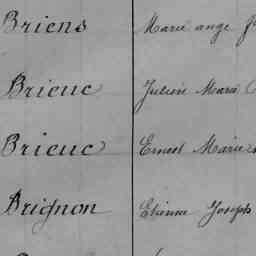 Briens Marie ange
Brieuc Julien Marie
Brieuc Ernest Marie
Brignon Etienne Joseph